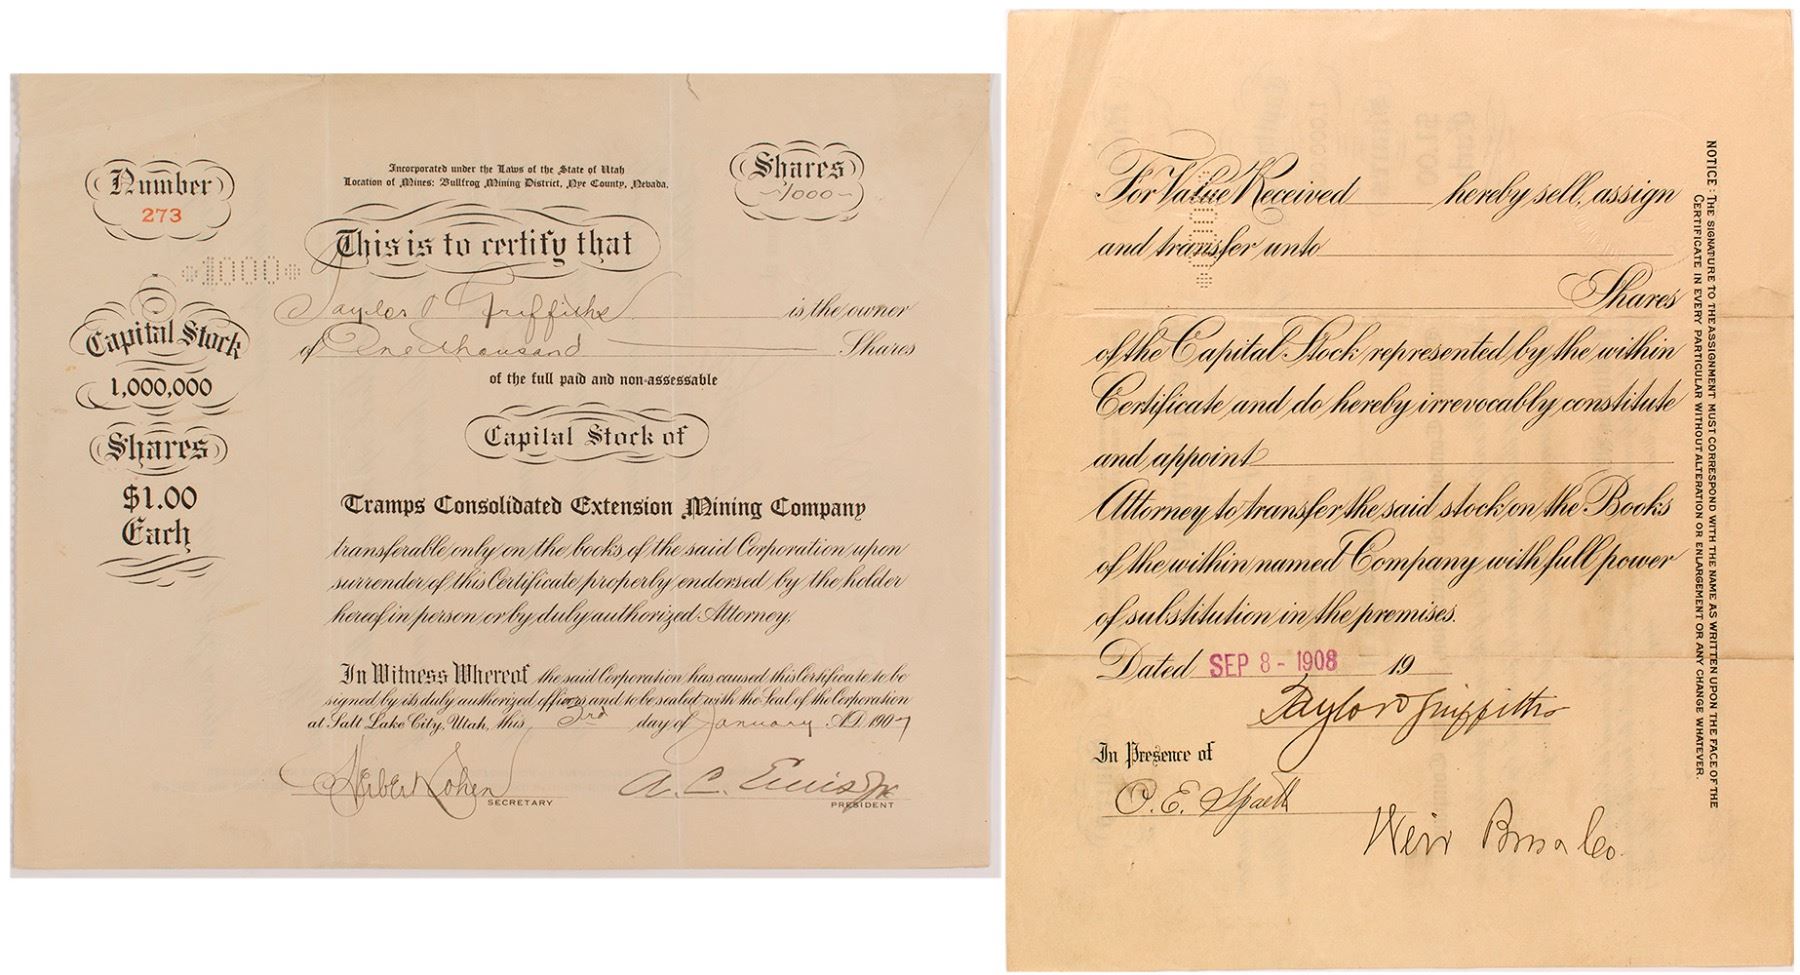 Number
273
Incorporated under the Laws of the State of Utah
Location of Mines: Bullfrog Mining District, Nye County, Nevada.
Shares
1000
This is to certify that
*1000*
Taylor P Griffiths is the owner
of One thousand Shares
of the full paid and non-assessable
Capital Stock
1,000,000
Shares
$1.00
Each
Capital Stock of
Tramps Consolidated Extension Mining Company
transferable only on the books of the said Corporation upon
surrender of this Certificate properly endorsed by the holder
hereof in person or by duly authorized Attorney.
In Witness Whereof the said Corporation has caused this Certificate to be
signed by its duly authorized officers and to be sealed with the Seal of the Corporation
at Salt Lake City, Utah, this 3rd day of January A.D. 1907
Herbert Cohen
SECRETARY
A. C. Ellis Jr
PRESIDENT
For Value Received hereby sell, assign
and transfer unto
Shares
of the Capital Stock represented by the within
Certificate and do hereby irrevocably constitute
and appoint
Attorney to transfer the said stock on the Books
of the within named Company with full power
of substitution in the premises.
Dated SEP 8 - 1908 19
Taylor P Griffiths
In Presence of
O. E. Spaeth
Weir Bros & Co.
NOTICE: THE SIGNATURE TO THE ASSIGNMENT MUST CORRESPOND WITH THE NAME AS WRITTEN UPON THE FACE OF THE
CERTIFICATE IN EVERY PARTICULAR WITHOUT ALTERATION OR ENLARGMENT OR ANY CHANGE WHATEVER.